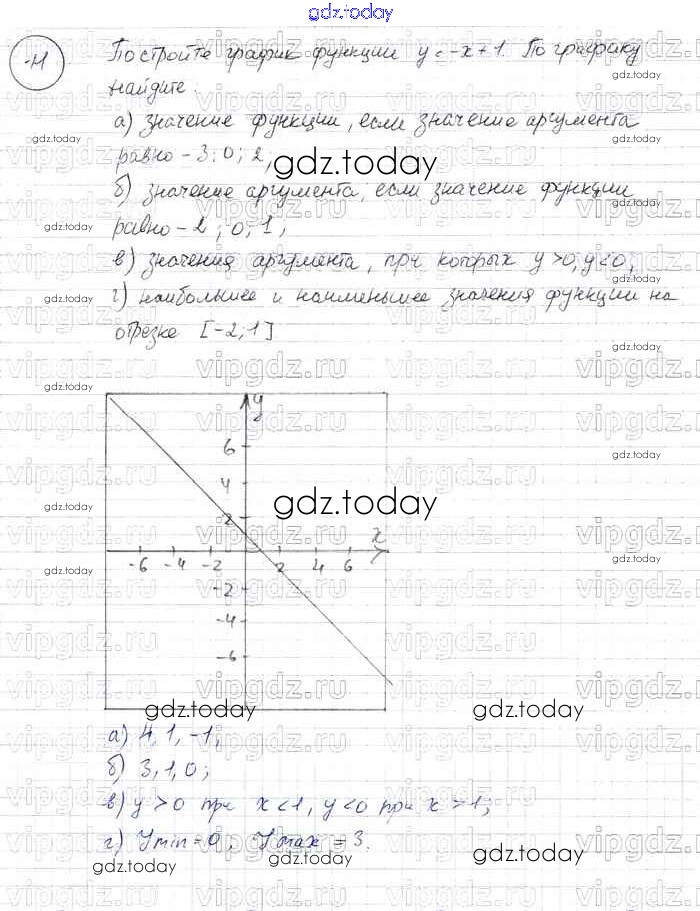 gdz.today
-11
Постройте график функции y=-x+1. По графику
найдите:
а) значение функции, если значение аргумента
равно -3; 0; 2,
б) значение аргумента, если значение функции
равно -2; 0; 1;
в) значения аргумента, при которых y>0, y<0;
г) наибольшее и наименьшее значения функции на
отрезке [-2,1]
y
6
4
2
x
-6 -4 -2 2 4 6
-2
-4
-6
а) 4, 1, -1;
б) 3, 1, 0;
в) y>0 при x<1, y<0 при x>1;
г) Ymin=0, Ymax=3.
gdz.today
vipgdz.ru